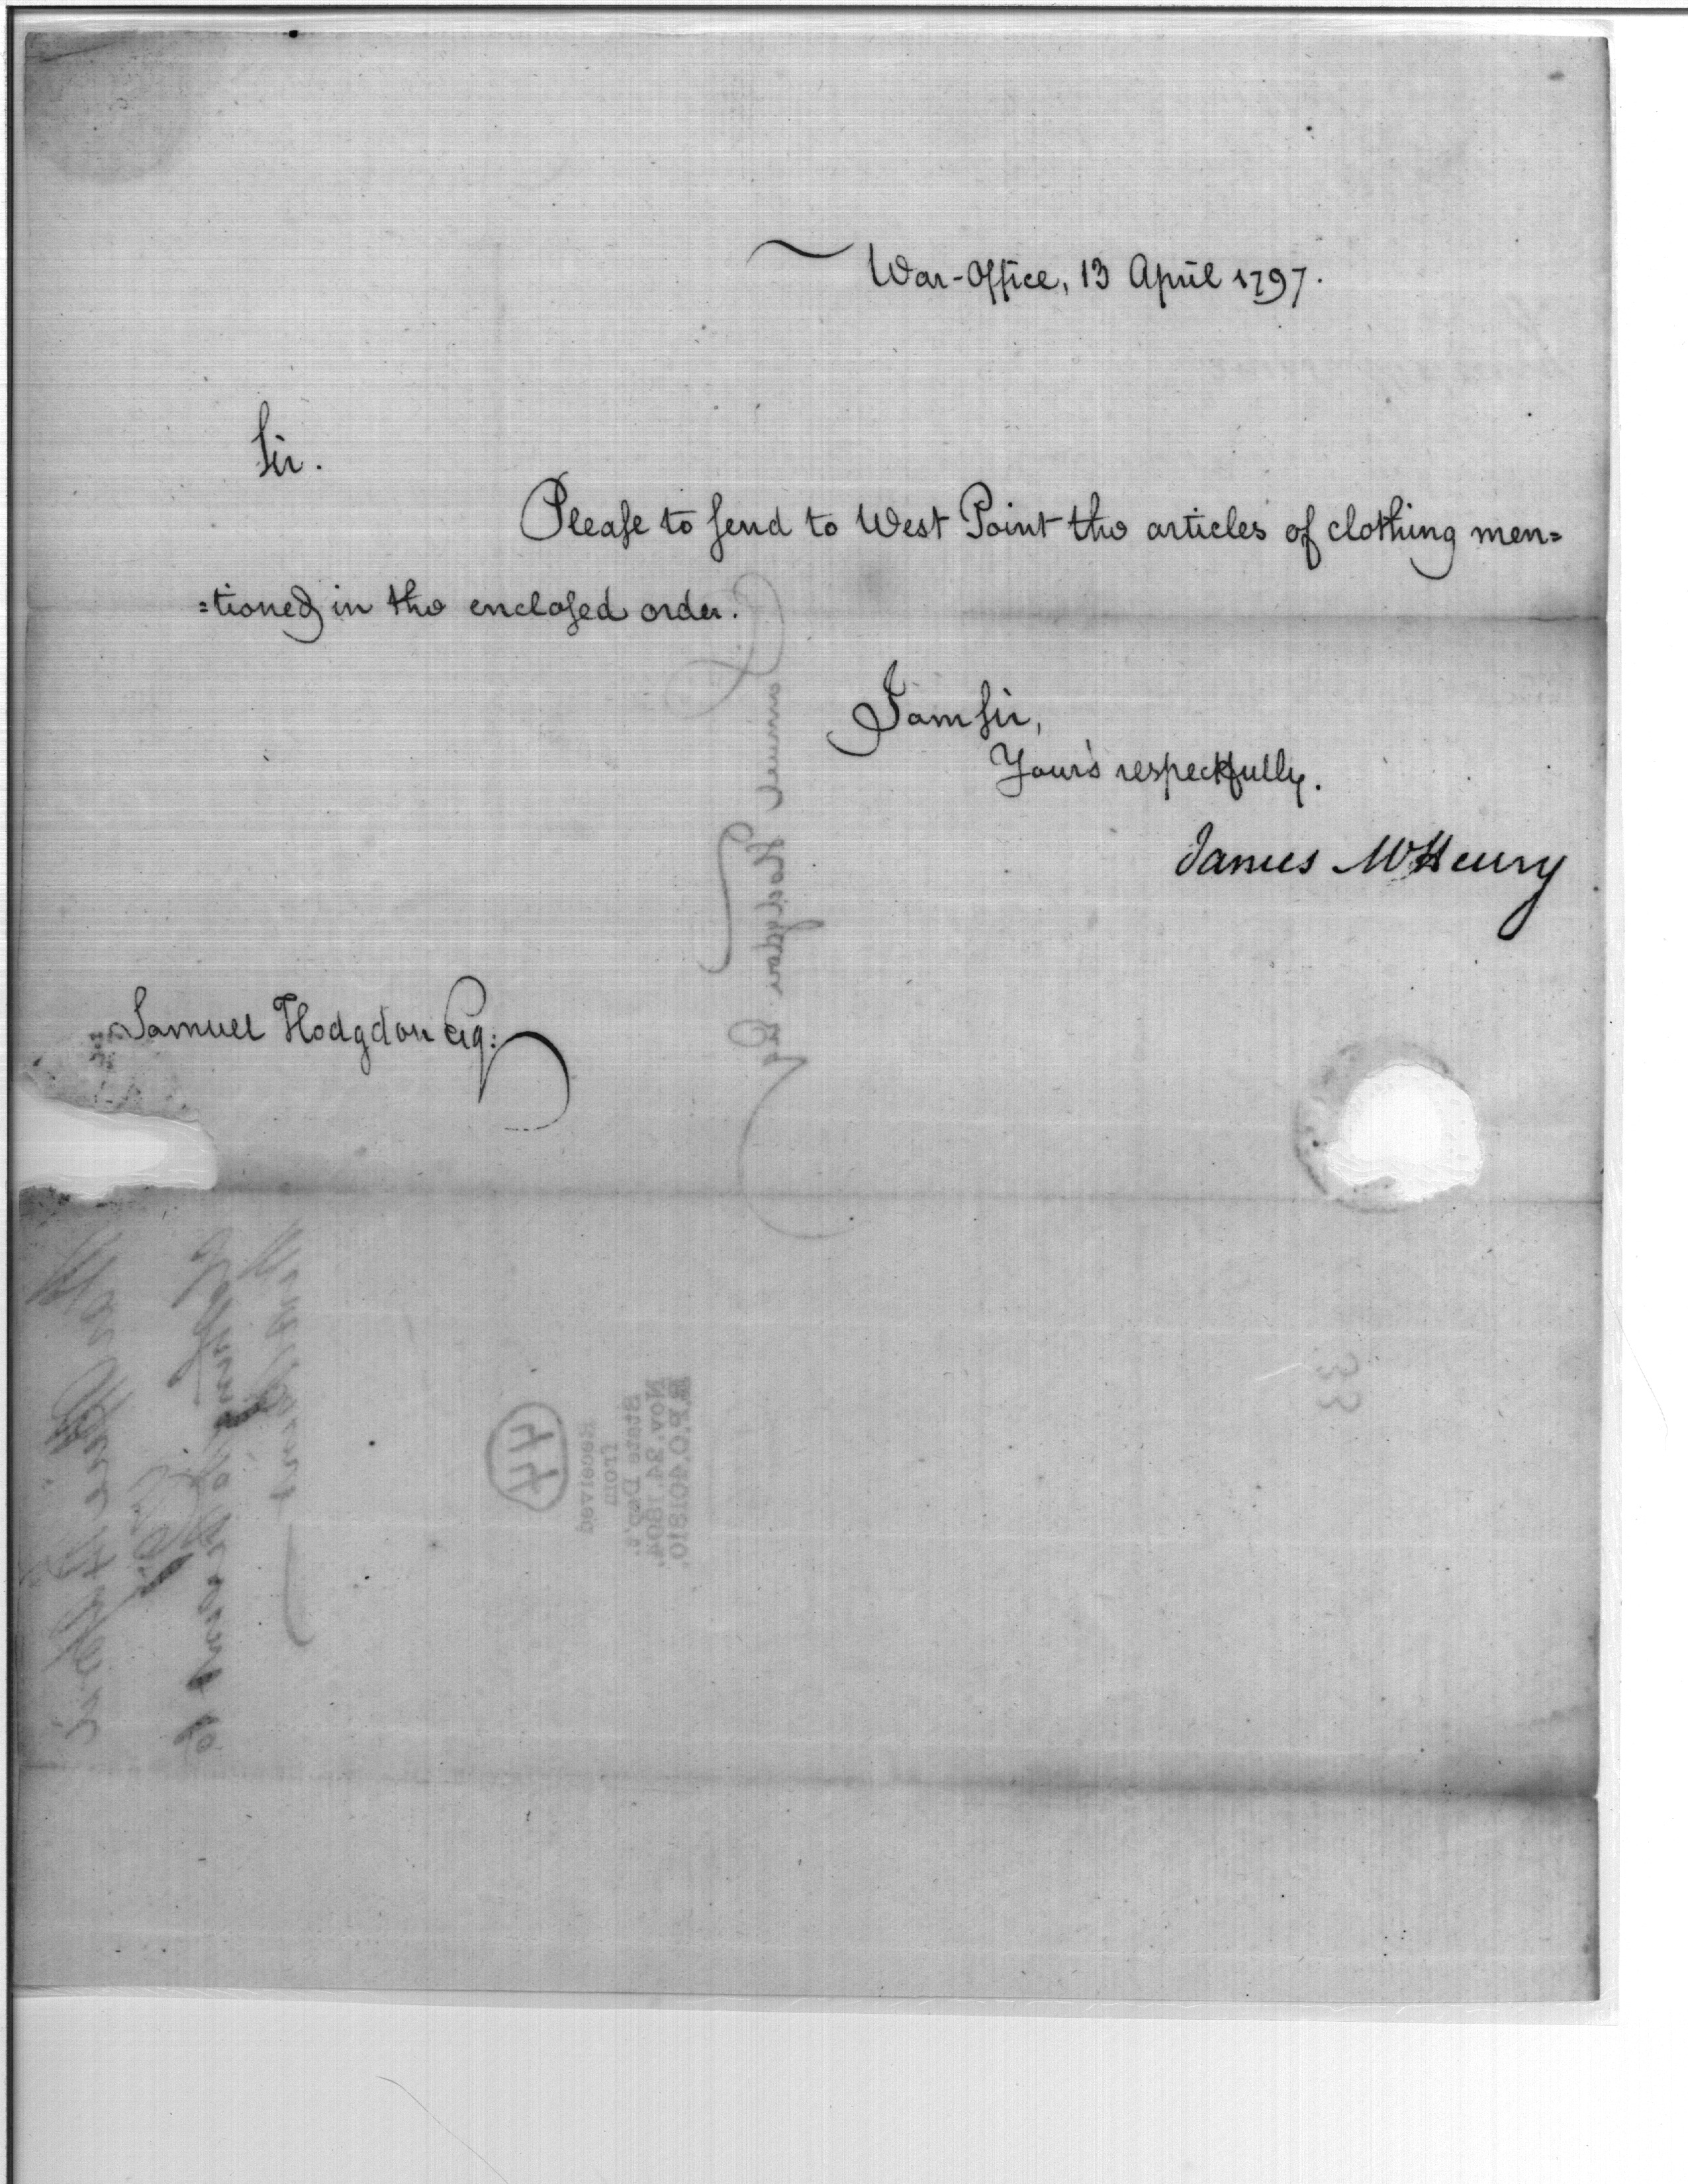 War-Office, 13 April 1797.
Sir.
Please to send to West Point the articles of clothing men=
=tioned in the enclosed order.
I am Sir,
Your's respectfully.
James McHenry
Samuel Hodgdon Esq:
Samuel Hodgdon Esq
33
44
Received
from
State Dep't.
Nov. 24, 1804.
R.P.O. 401810.